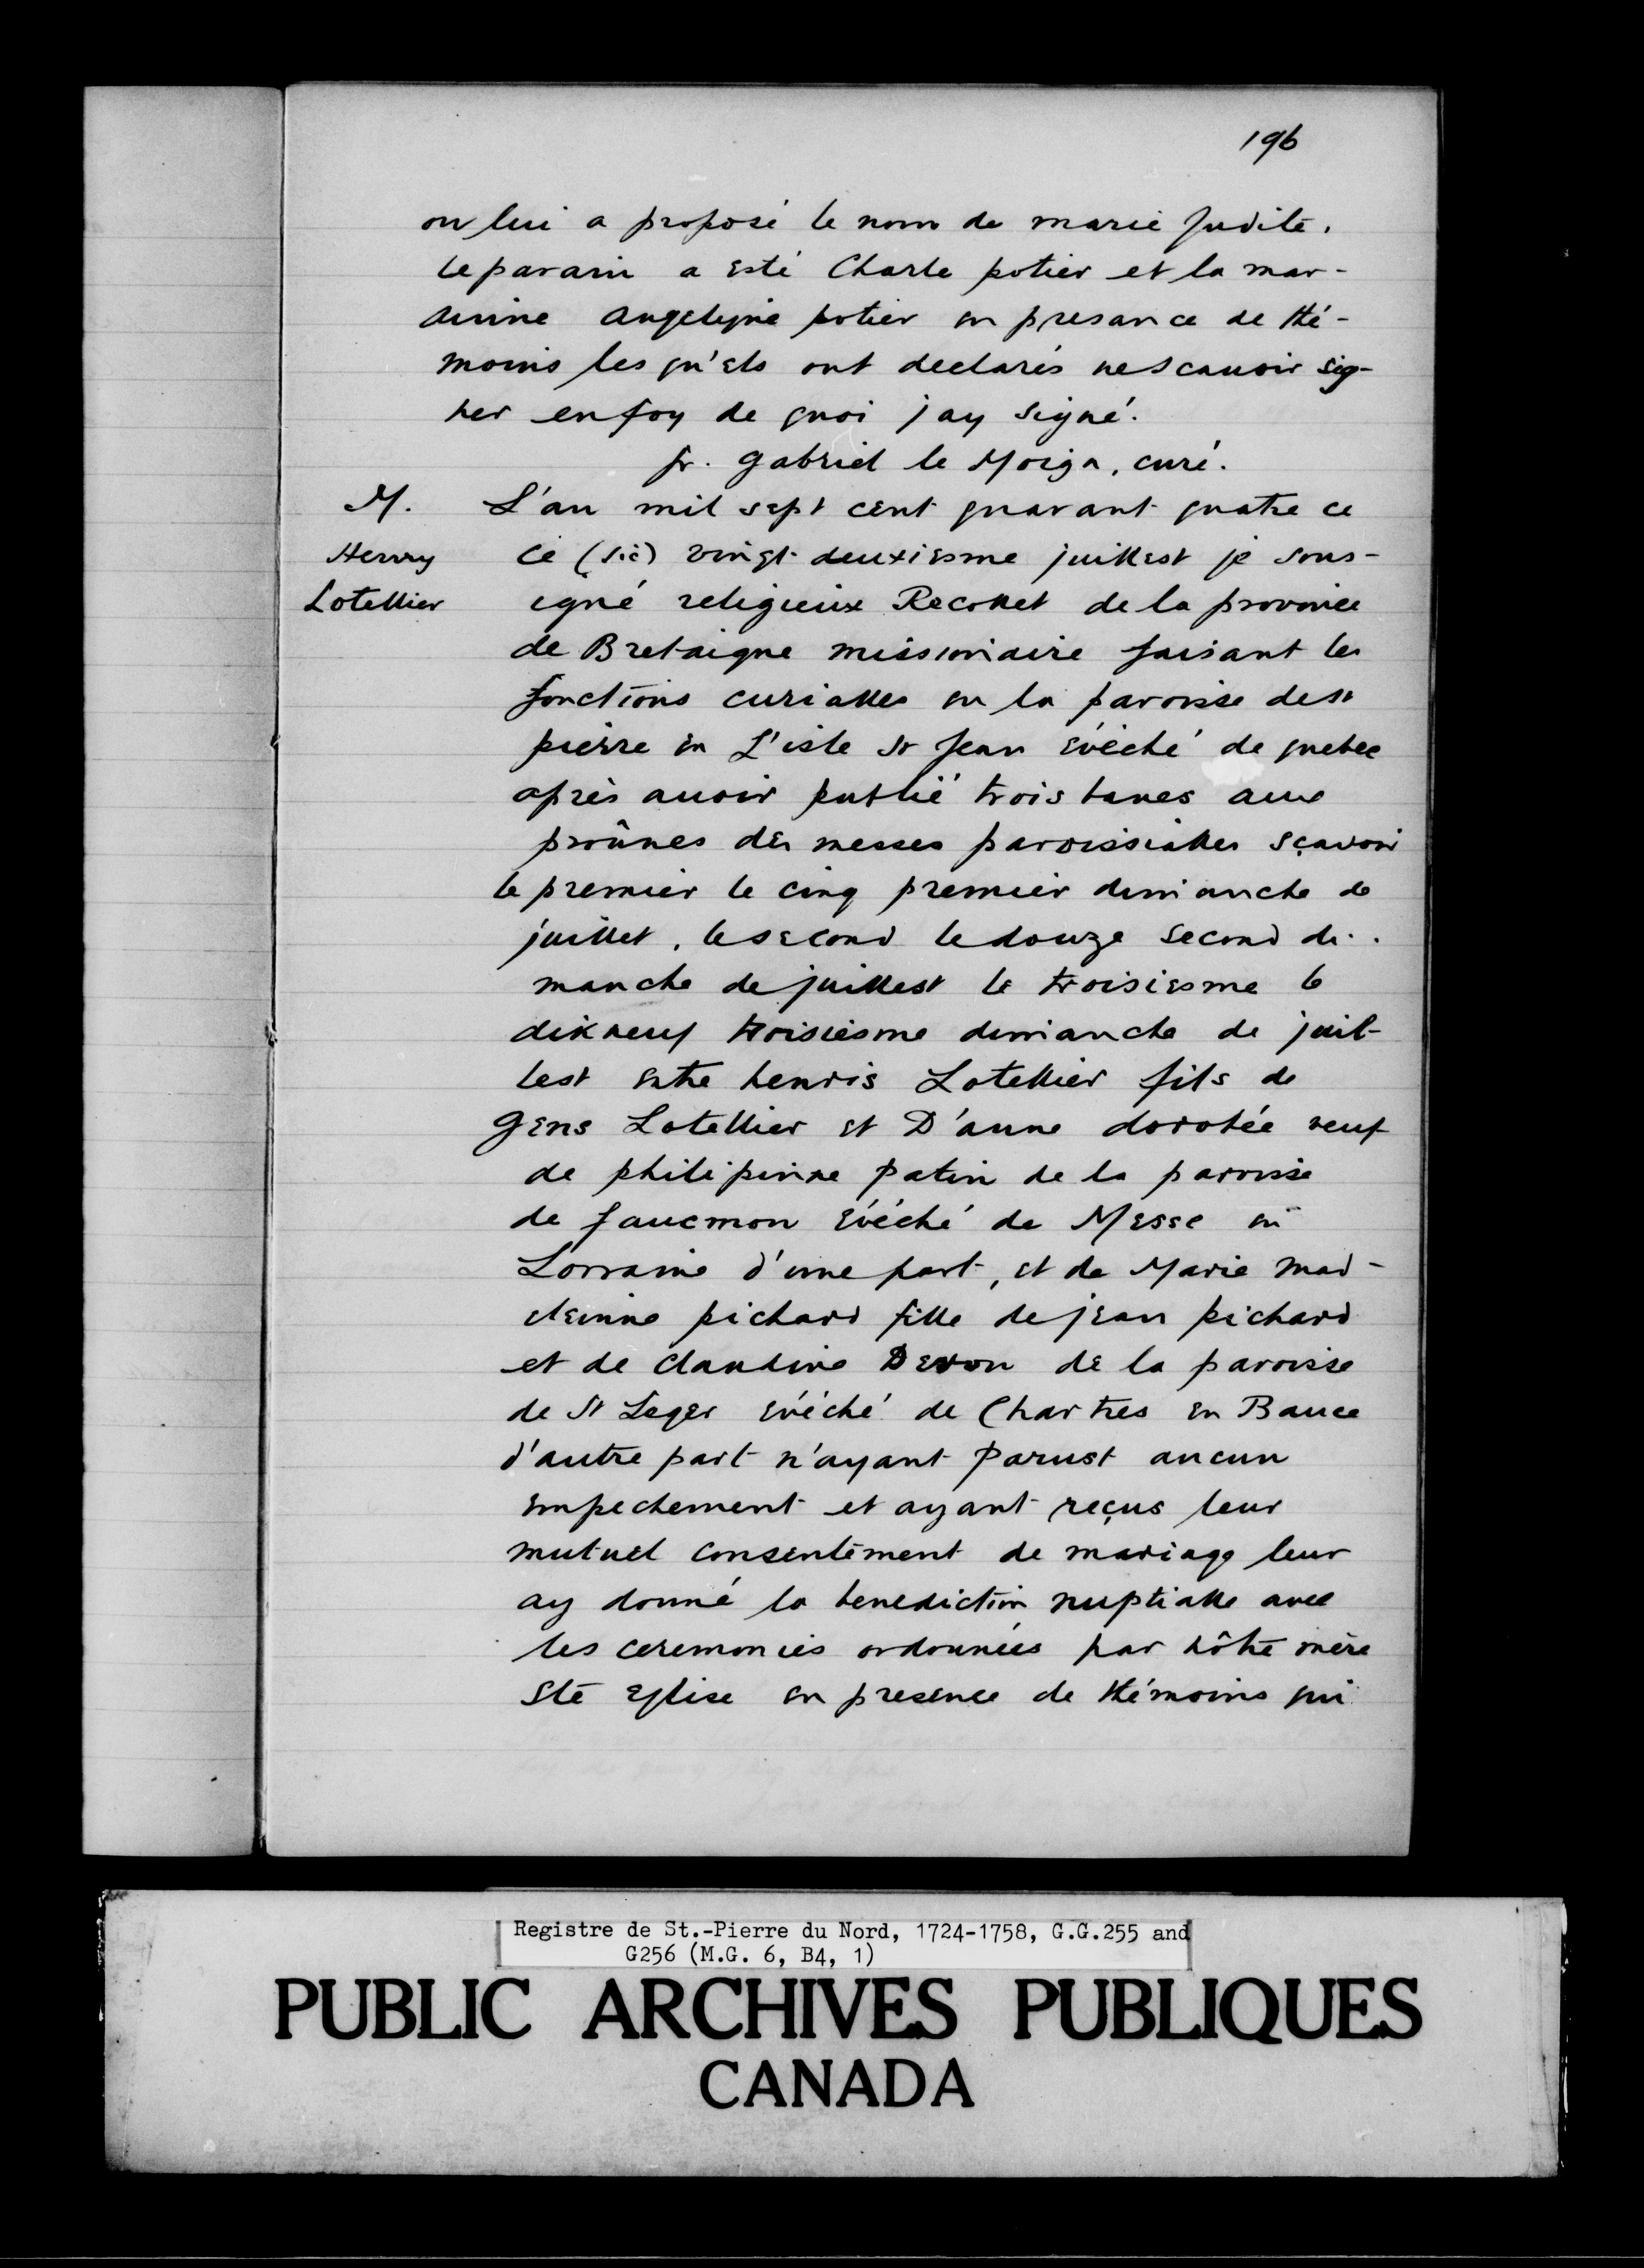 196
on lui a proposé le nom de marie Judite.
le parain a esté Charle potier et la mar-
ainne angelyne potier en presance de thé-
moins les qu'els ont declarés ne scauoir sig-
ner en foy de quoi jay signé.
fr. gabriel le Moign, curé.
M. L'an mil sept cent quarant quatre ce
Henry ce (sic) vingt deuxiesme juillest je sous-
Lotellier igné religieux Recollet de la province
de Bretaigne missionaire faisant les
fonctions curialles en la paroisse de st
pierre en L'isle st Jean évèché de quebec
après auoir publié trois banes aux
prônnes des messes paroissialles sçavoir
le premier le cinq premier dimanche de
juillet, le second le douze second di..
manche de juillest le troisiesme le
dixneuf troisiesme dimanche de juil-
lest entre henris Lotellier fils de
gens Lotellier et D'anne dorotée veuf
de philipinne patin de la paroisse
de faucmon évéché de Messe en
Lorraine d'une part, et de Marie mad-
eleinne pichard fille de jean pichard
et de Claudine Devon de la paroisse
de St Leger évéché de Chartres en Bauce
d'autre part n'ayant Parust aucun
empechement et ayant reçus leur
mutuel consentement de mariage leur
ay donné la benediction nuptialle avec
les ceremonies ordonnées par nôtre mère
Ste Eglise en presence de thémoins qui
Registre de St.-Pierre du Nord, 1724-1758, G.G.255 and
G256 (M.G. 6, B4, 1)
PUBLIC ARCHIVES PUBLIQUES
CANADA